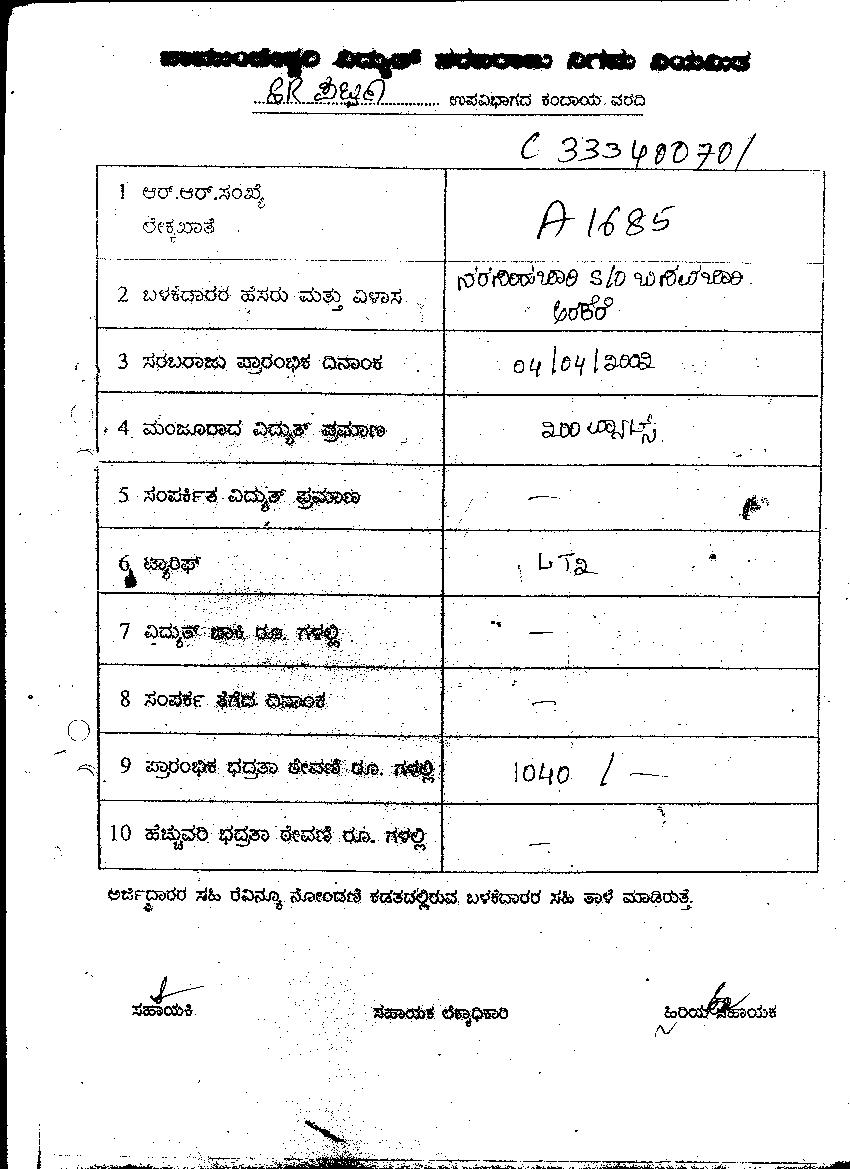 ಚಾಮುಂಡೇಶ್ವರಿ ವಿದ್ಯುತ್ ಸರಬರಾಜು ನಿಗಮ ನಿಯಮಿತ
ಉಪವಿಭಾಗದ ಕಂದಾಯ ವರದಿ
C 33340070/
1 ಆರ್.ಆರ್.ಸಂಖ್ಯೆ
ಲೆಕ್ಕಖಾತೆ
A 1685
2 ಬಳಕೆದಾರರ ಹೆಸರು ಮತ್ತು ವಿಳಾಸ
S/O
ಅರಕೆರೆ
3 ಸರಬರಾಜು ಪ್ರಾರಂಭಿಕ ದಿನಾಂಕ
04/04/೨೦೦೨
4 ಮಂಜೂರಾದ ವಿದ್ಯುತ್ ಪ್ರಮಾಣ
೨೦೦ ವ್ಯಾಟ್ಸ್
5 ಸಂಪರ್ಕಿತ ವಿದ್ಯುತ್ ಪ್ರಮಾಣ —
6 ಟ್ಯಾರಿಫ್ LT೨
7 ವಿದ್ಯುತ್ ಬಾಕಿ ರೂ. ಗಳಲ್ಲಿ —
8 ಸಂಪರ್ಕ ತೆಗೆದ ದಿನಾಂಕ —
9 ಪ್ರಾರಂಭಿಕ ಭದ್ರತಾ ಠೇವಣಿ ರೂ. ಗಳಲ್ಲಿ 1040 / —
10 ಹೆಚ್ಚುವರಿ ಭದ್ರತಾ ಠೇವಣಿ ರೂ. ಗಳಲ್ಲಿ —
ಅರ್ಜಿದಾರರ ಸಹಿ ರೆವಿನ್ಯೂ ನೋಂದಣಿ ಕಡತದಲ್ಲಿರುವ ಬಳಕೆದಾರರ ಸಹಿ ತಾಳೆ ಮಾಡಿರುತ್ತೆ.
ಸಹಾಯಕಿ ಸಹಾಯಕ ಲೆಕ್ಕಾಧಿಕಾರಿ ಹಿರಿಯ ಸಹಾಯಕ